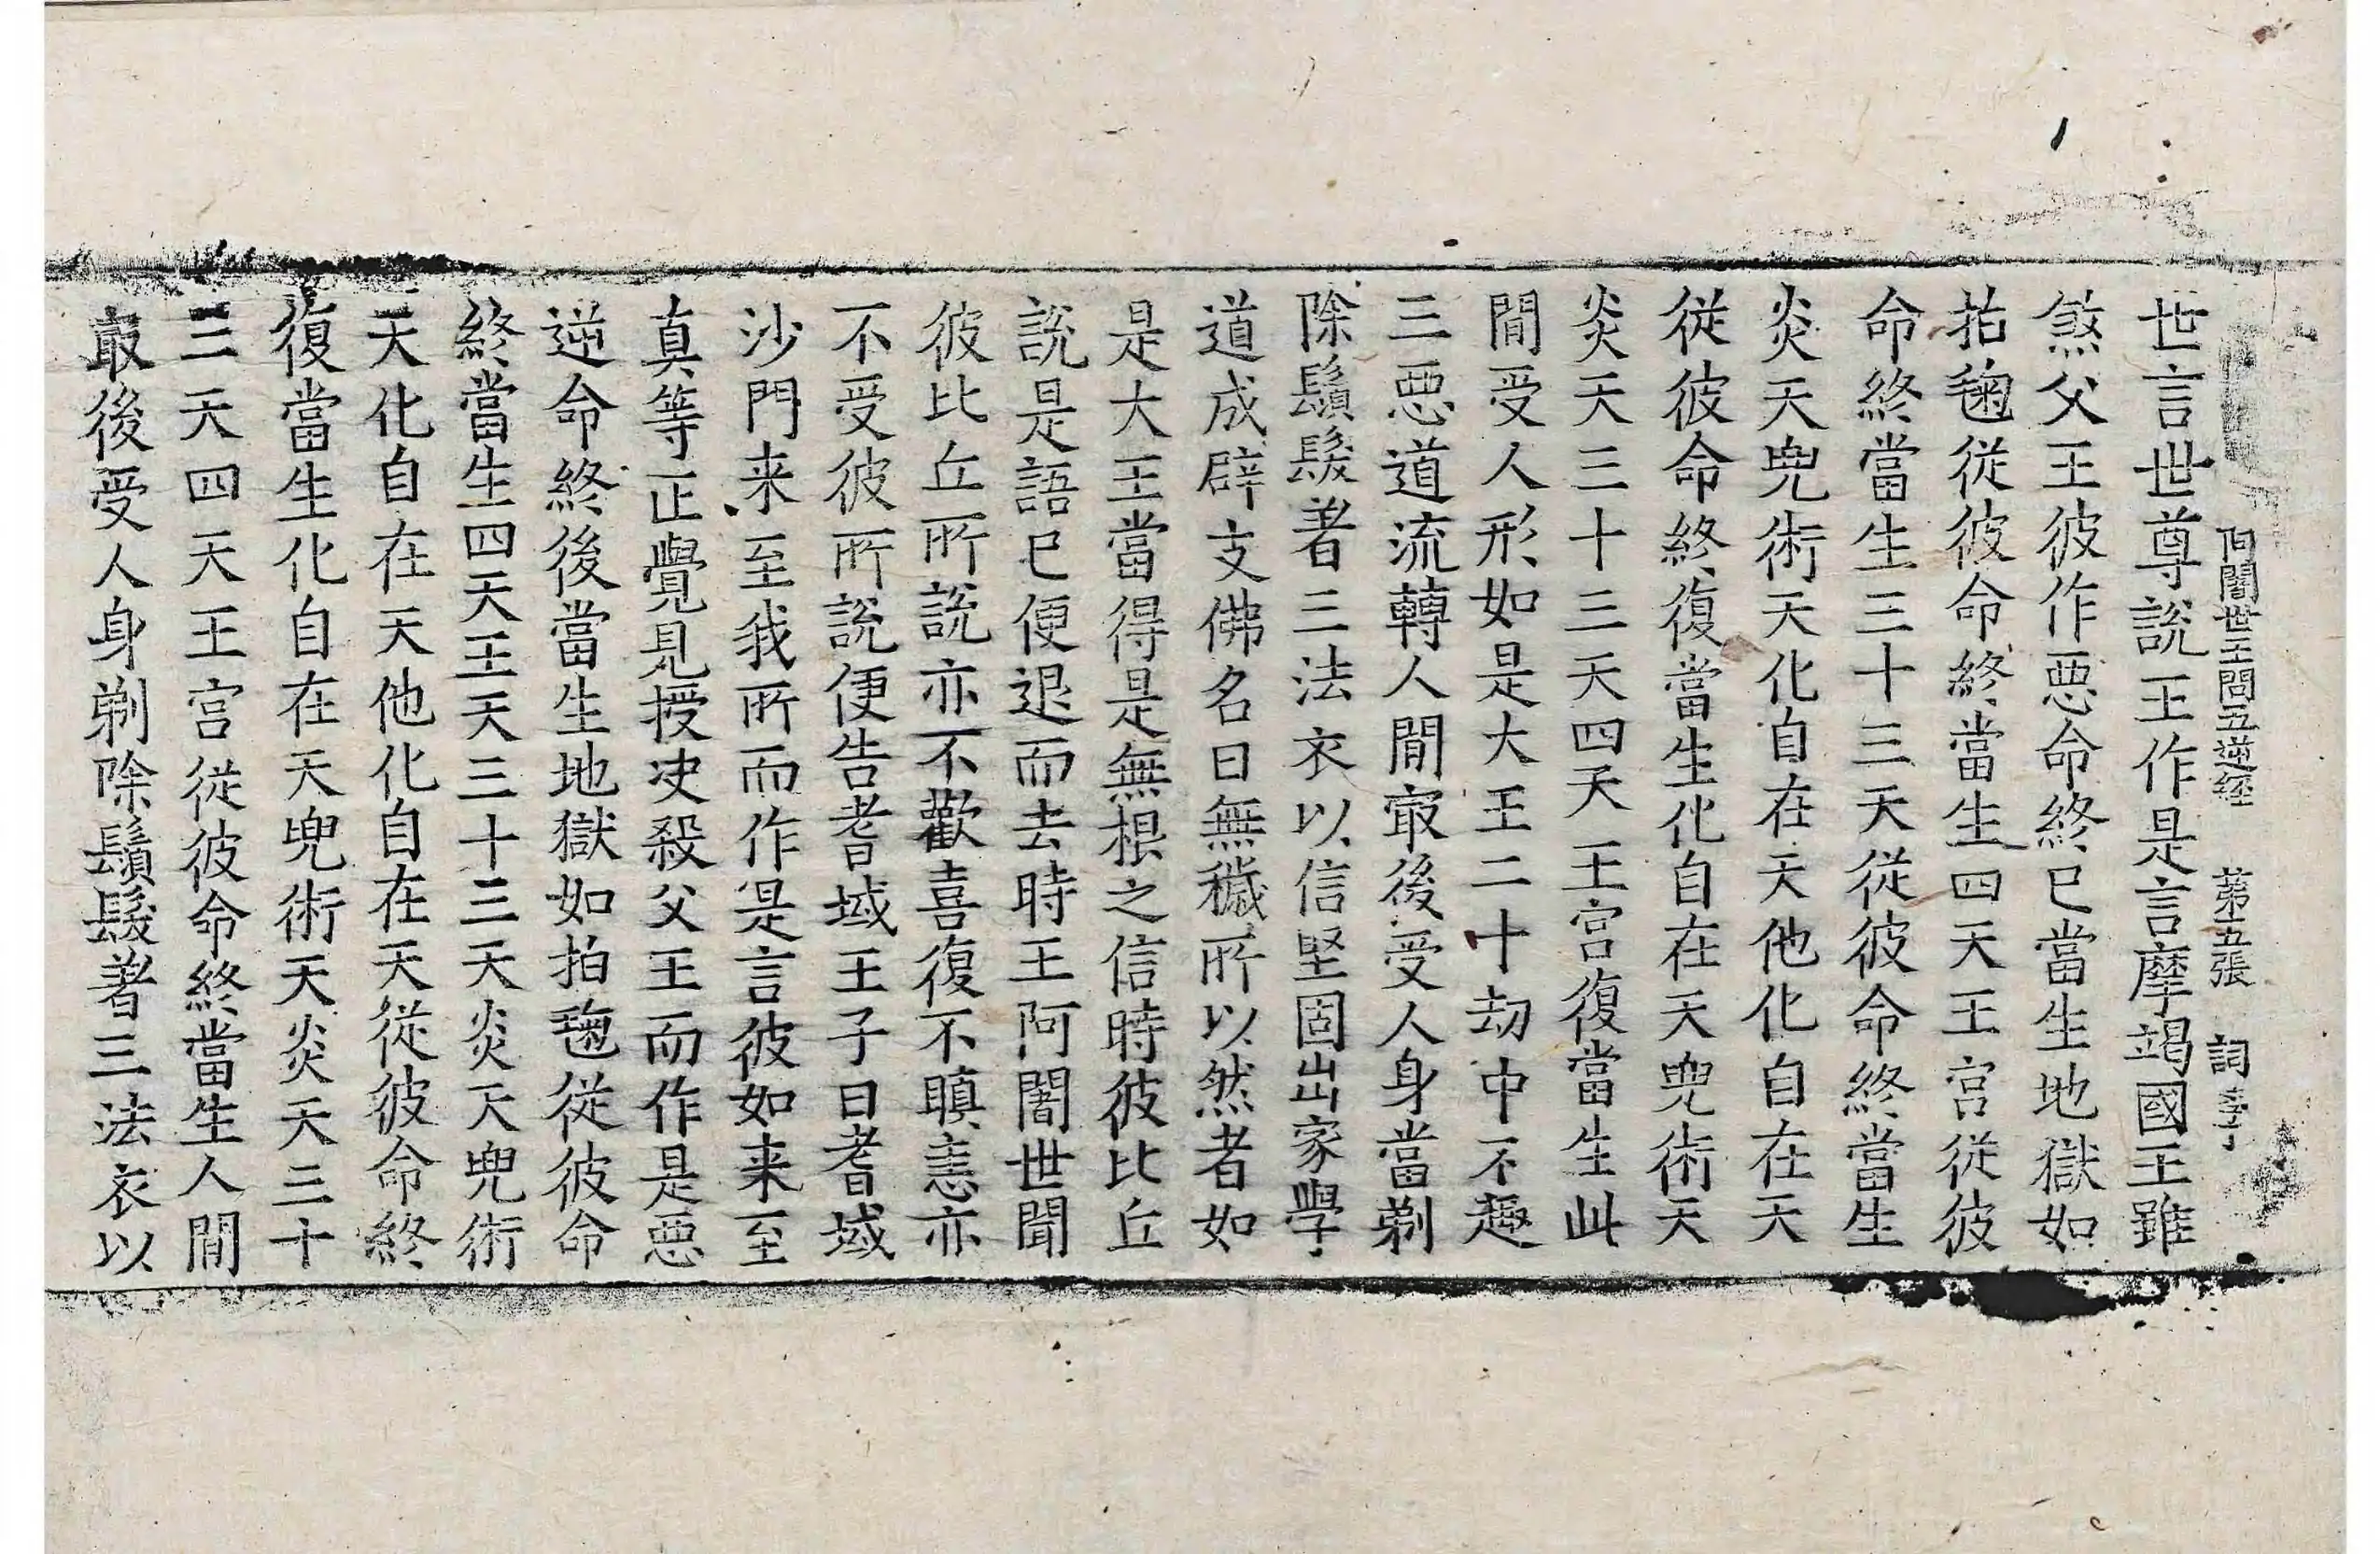 阿闍世王問五逆經 第五張 詞
世言世尊說王作是言摩竭國王雖
煞父王彼作惡命終已當生地獄如
拍毱從彼命終當生四天王宮從彼
命終當生三十三天從彼命終當生
炎天兜術天化自在天他化自在天
從彼命終復當生化自在天兜術天
炎天三十三天四天王宮復當生此
閒受人形如是大王二十劫中不趣
三惡道流轉人間㝡後受人身當剃
除鬚髮著三法衣以信堅固出家學
道成辟支佛名曰無穢所以然者如
是大王當得是無根之信時彼比丘
說是語已便退而去時王阿闍世聞
彼比丘所說亦不歡喜復不瞋恚亦
不受彼所說便告耆域王子曰耆域
沙門来至我所而作是言彼如来至
真等正覺見授决殺父王而作是惡
逆命終後當生地獄如拍毱從彼命
終當生四天王天三十三天炎天兜術
天化自在天他化自在天從彼命終
復當生化自在天兜術天炎天三十
三天四天王宮從彼命終當生人閒
㝡後受人身剃除鬚髮著三法衣以